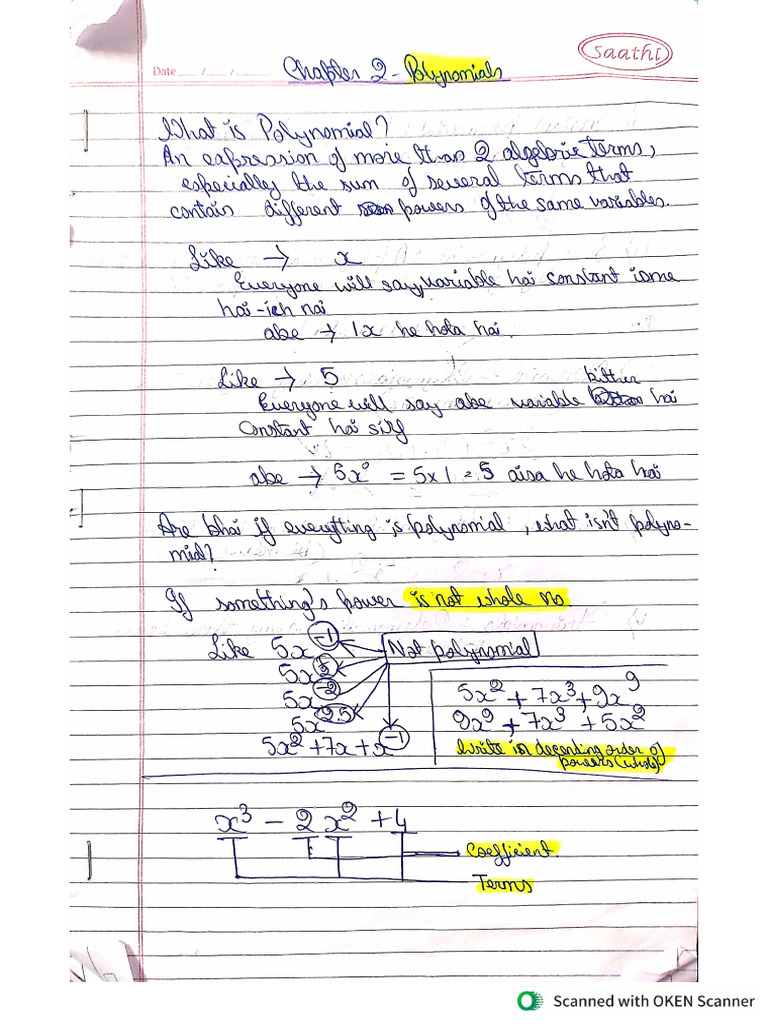 Saathi
Date ___/___/___
Chapter 2 - Polynomials
What is Polynomial?
An expression of more than 2 algebric terms,
especially the sum of several terms that
contain different powers of the same variables.
Like → x
Everyone will say, variable hai constant isme
hai-ich nai
abe → 1x he hota hai.
Like → 5
kither
Everyone will say abe variable hai
Constant hai sirf
abe → 5x⁰ = 5x1 = 5 aisa he hota hai
Are bhai if everyting is polynomial, what isn't polyno-
mial?
If something's power is not whole no
Like 5x⁻¹ Not polynomial
5x
5x⁻²
5x²·⁵
5x² + 7x + x⁻¹
5x² + 7x³ + 9x⁹
9x⁹ + 7x³ + 5x²
Write in decending order of
powers (whole)
x³ - 2x² + 4
Coefficient.
Terms
Scanned with OKEN Scanner